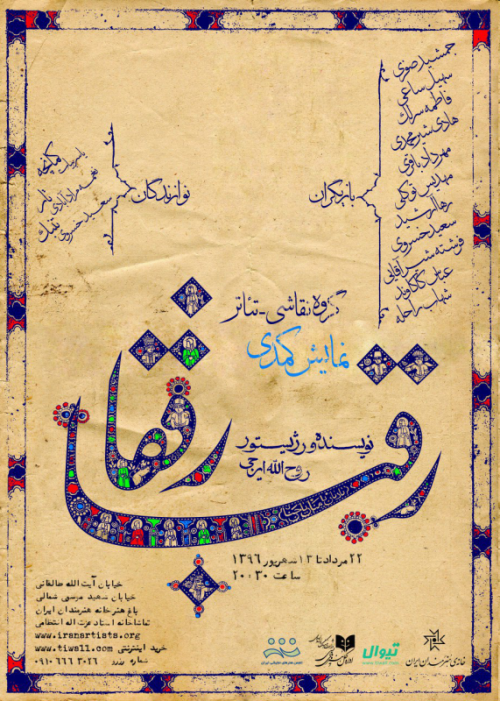 بازیگران
جمشید صفری
سهیل ساعی
فاطمه سرلک
هادی شیرمحمدی
مهرداد باقری
مهدیس توکلی
رها الرشید
سعید خسروی
شهاب راحله
نوازندگان
سعید خسروی تنبک
گروه نقاشی-تئاتر
نمایش کمدی
رقبا رفقا
نویسنده و رژیستور
روح الله ایرجی
۲۲ مرداد تا ۱۳ شهریور ۱۳۹۶
ساعت ۲۰:۳۰
خیابان آیت الله طالقانی
خیابان سعید موسی شمالی
باغ هنر خانه هنرمندان ایران
تماشاخانه استاد عزت اله انتظامی
www.iranartists.org
خرید اینترنتی www.tiwall.com
شماره ۰۹۱۰ ۶۶۶ ۳۰۲۶
تیوال
خانه‌ی هنرمندان ایران